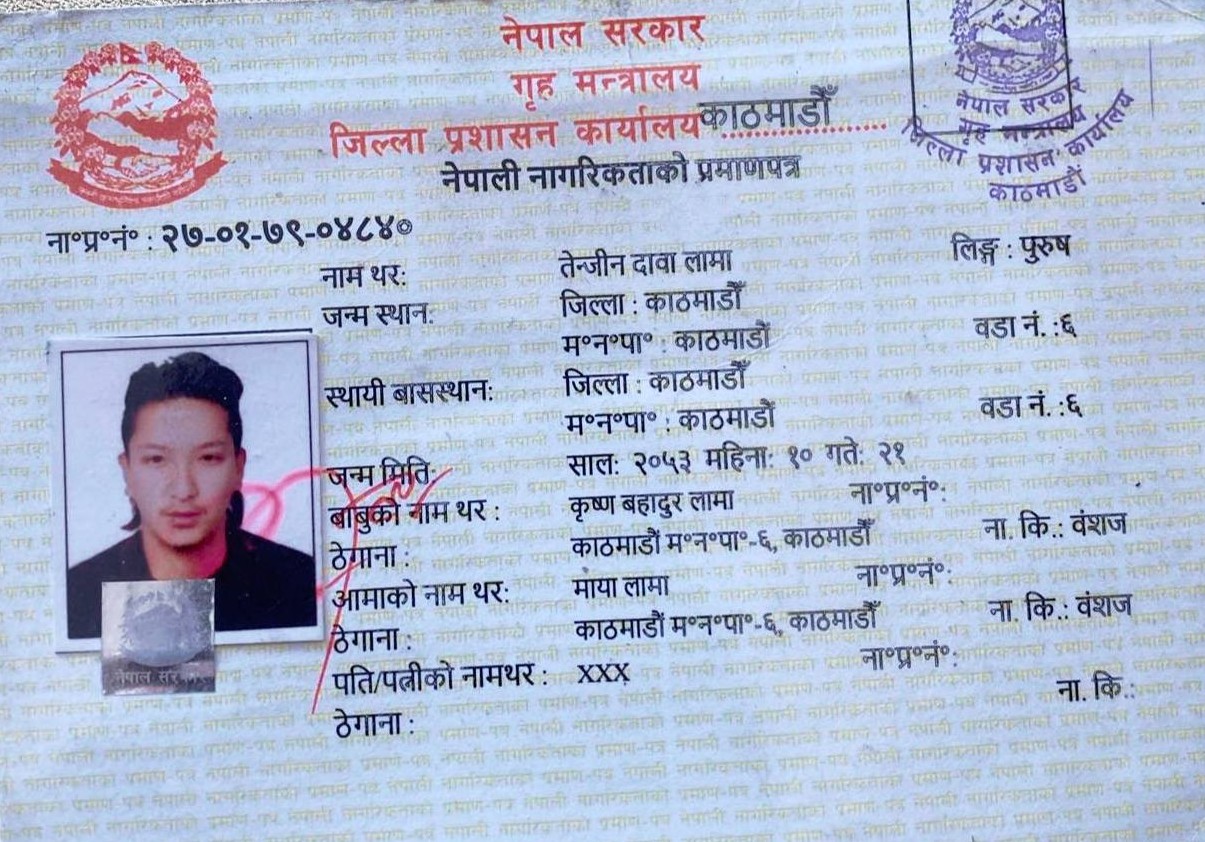 नेपाल सरकार
गृह मन्त्रालय
जिल्ला प्रशासन कार्यालय काठमाडौँ
नेपाली नागरिकताको प्रमाणपत्र
नेपाल सरकार
गृह मन्त्रालय
जिल्ला प्रशासन कार्यालय
काठमाडौँ
ना॰प्र॰नं॰ : २७-०१-७९-०४८४०
लिङ्ग : पुरुष
नाम थर: तेन्जीन दावा लामा
जन्म स्थान: जिल्ला : काठमाडौँ
म॰न॰पा॰ : काठमाडौँ वडा नं. :६
स्थायी बासस्थान: जिल्ला : काठमाडौँ
म॰न॰पा॰ : काठमाडौँ वडा नं. :६
जन्म मिति: साल: २०५३ महिना: १० गते: २१
बाबुको नाम थर : कृष्ण बहादुर लामा ना॰प्र॰नं॰:
ठेगाना : काठमाडौं म॰न॰पा॰-६, काठमाडौँ ना. कि.: वंशज
आमाको नाम थर: माया लामा ना॰प्र॰नं॰:
ठेगाना : काठमाडौं म॰न॰पा॰-६, काठमाडौँ ना. कि.: वंशज
पति/पत्नीको नामथर : XXX ना॰प्र॰नं॰:
ठेगाना : ना. कि.:
नेपाल सरकार